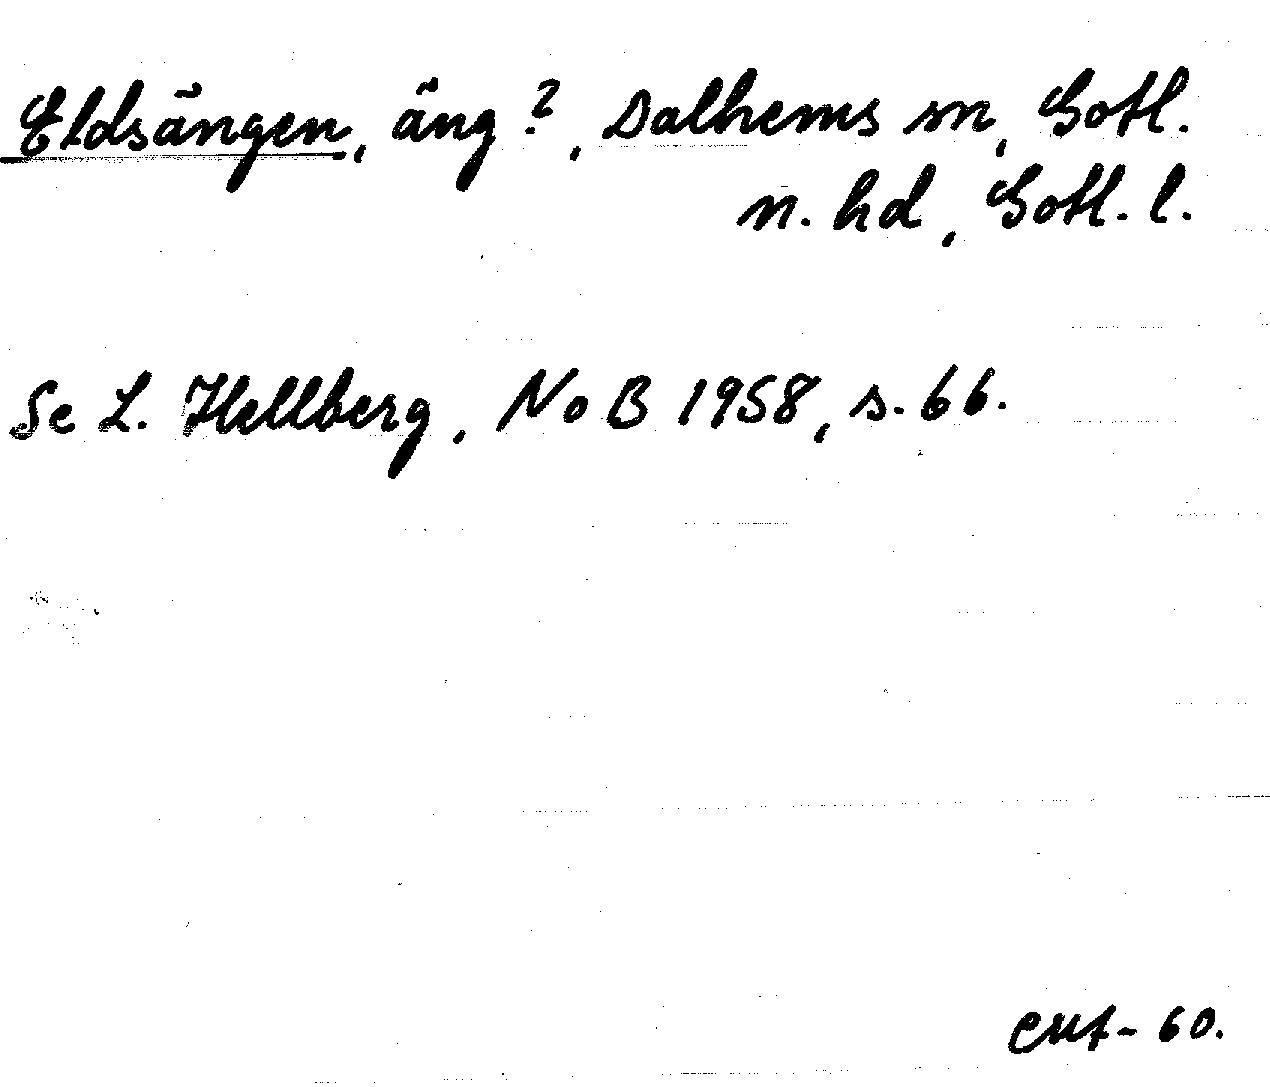 Eldsängen, äng?, Dalhems sn, Gotl.
n. hd, Gotl. l.
Se L. Hellberg, NoB 1958, s. 66.
60.